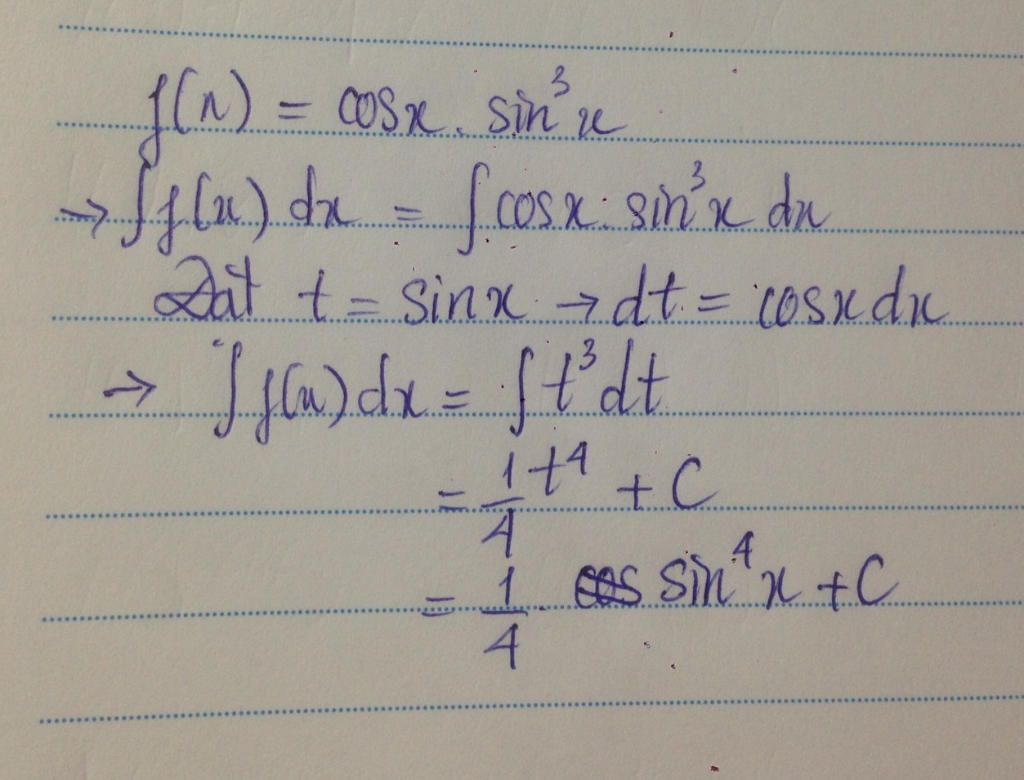 f(x) = cosx . sin³x
→ ∫f(x) dx = ∫cosx . sin³x dx
Đặt t = sinx → dt = cosx dx
→ ∫f(x) dx = ∫t³ dt
= 1/4 t⁴ + C
= 1/4 . sin⁴x + C